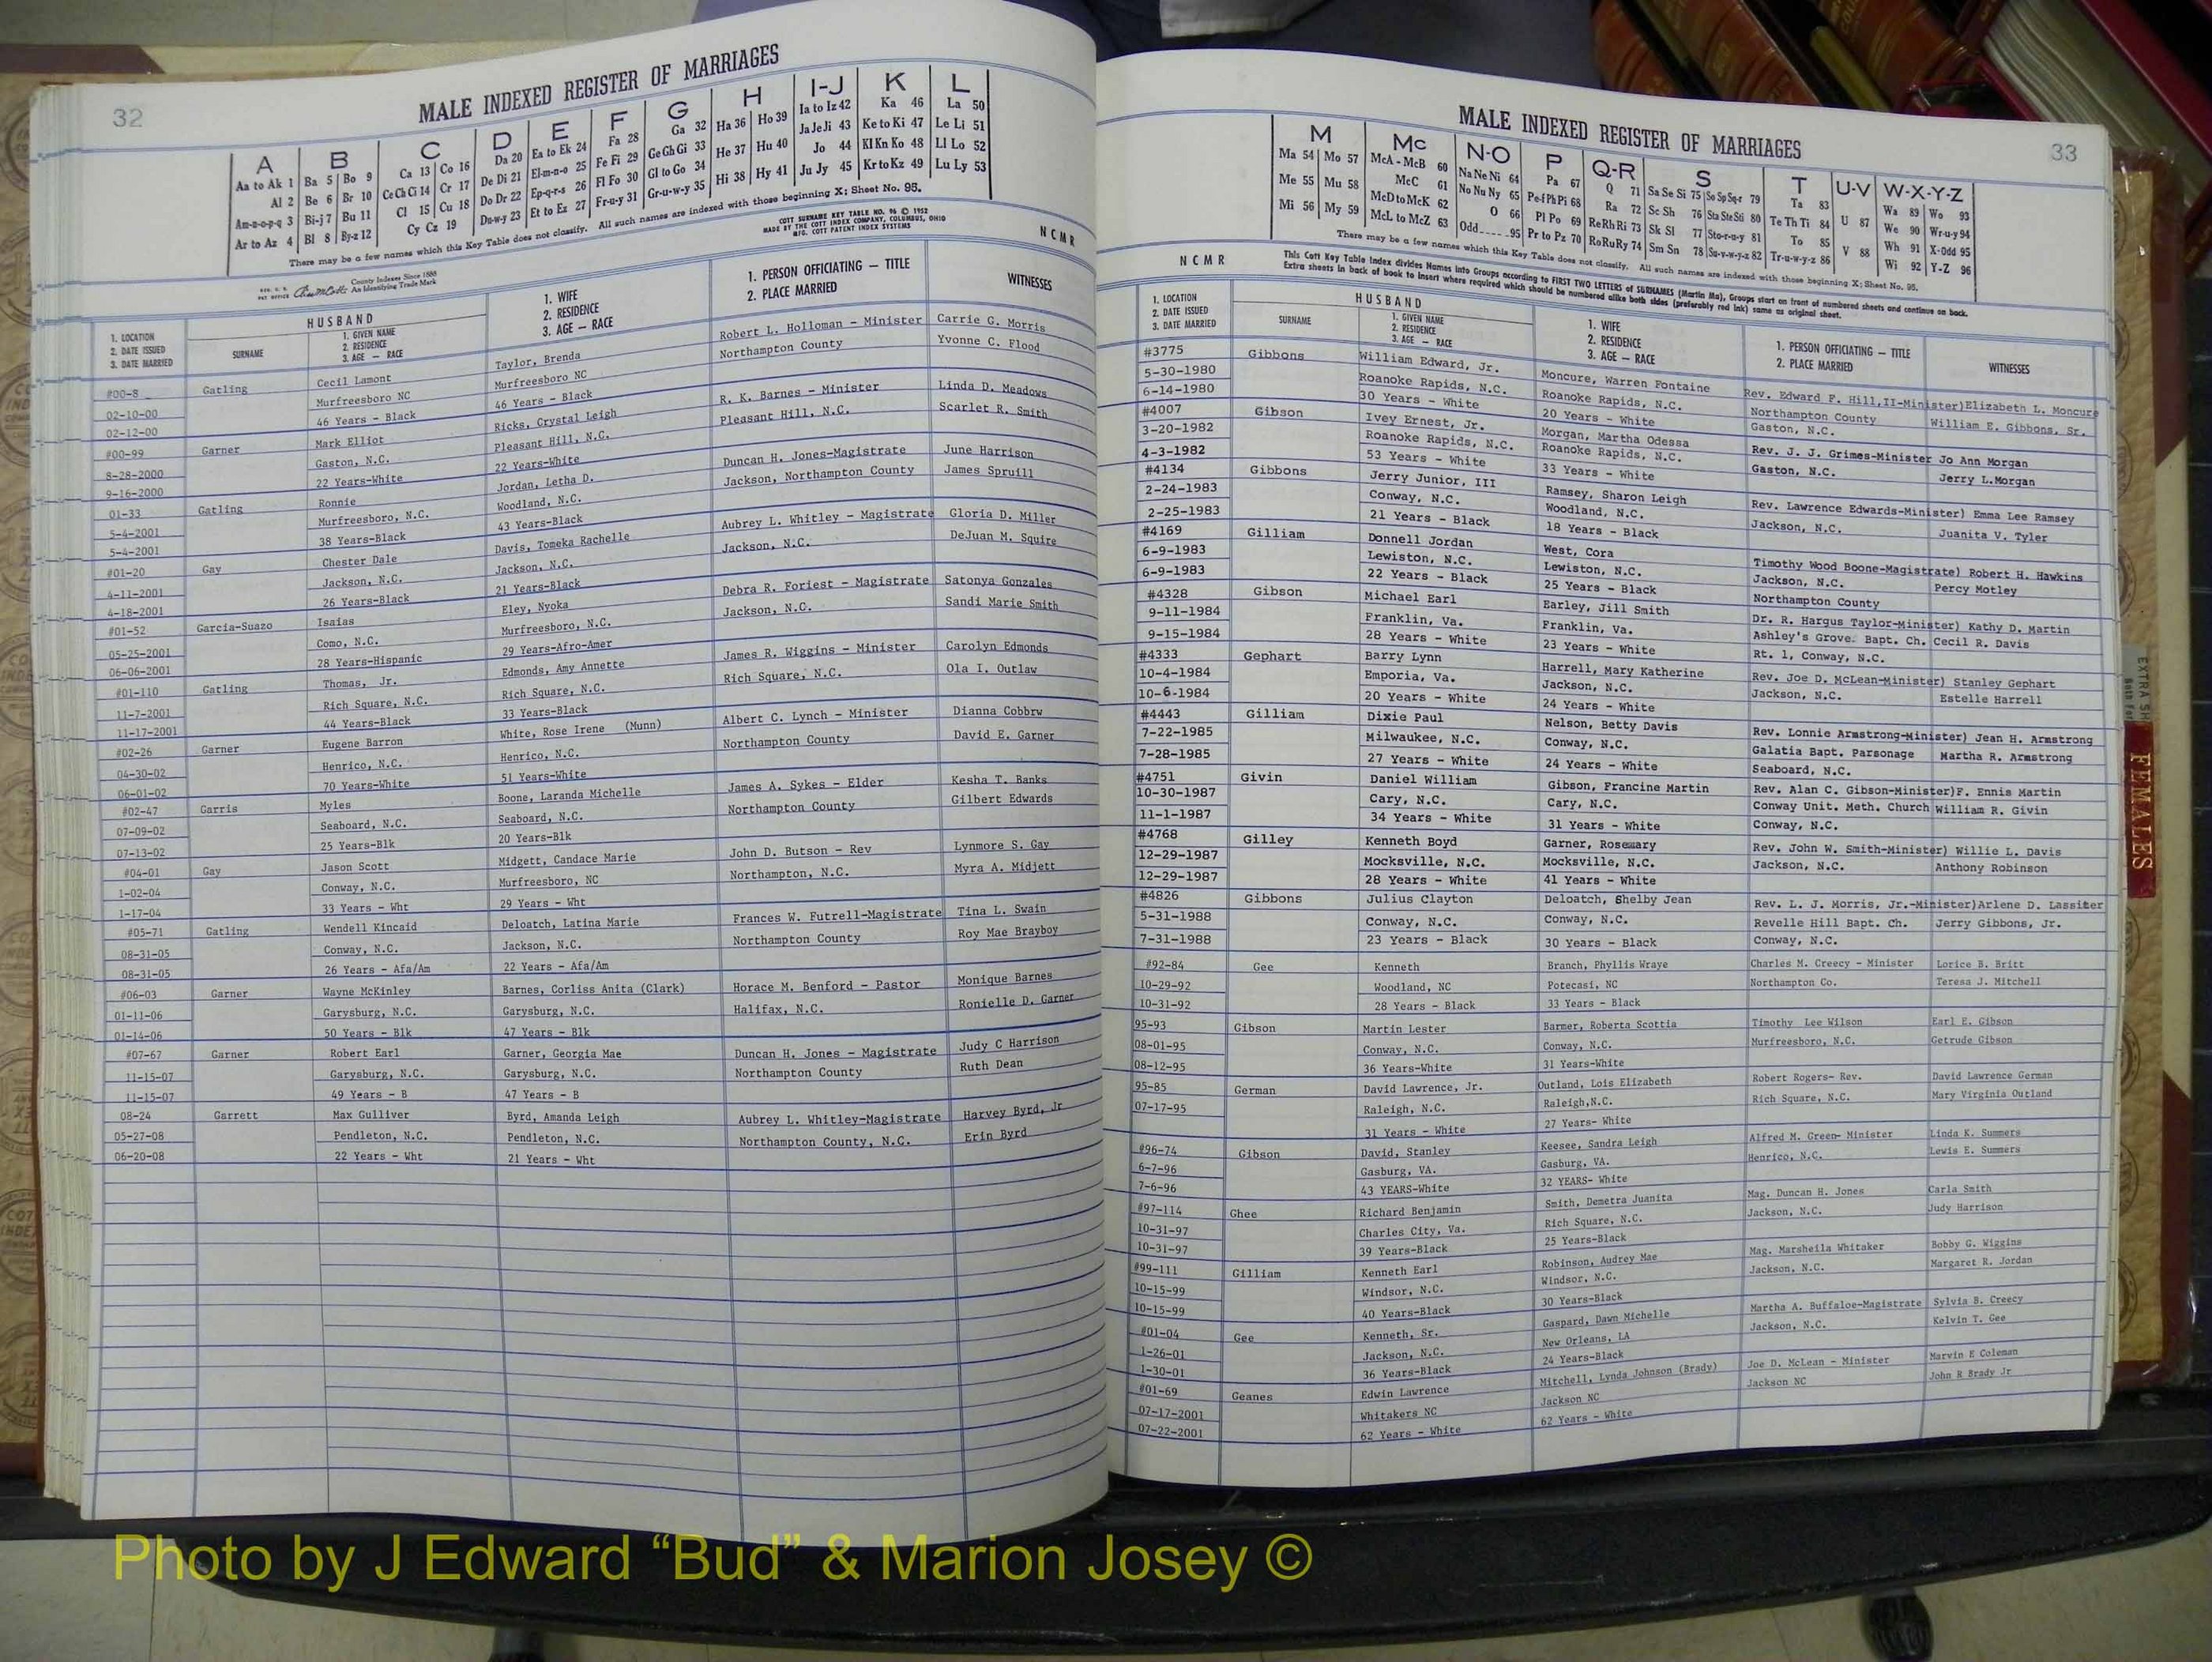 32
MALE INDEXED REGISTER OF MARRIAGES
A B C D E F G H I-J K L
Aa to Ak 1 Ba 5 Bo 9 Ca 13 Co 16 Da 20 Ea to Ek 24 Fa 28 Ga 32 Ha 36 Ho 39 Ia to Iz 42 Ka 46 La 50
Al 2 Be 6 Br 10 Ce Ch Ci 14 Cr 17 De Di 21 El-m-n-o 25 Fe Fi 29 Ge Gh Gi 33 He 37 Hu 40 Ja Je Ji 43 Ke to Ki 47 Le Li 51
Am-n-o-p-q 3 Bi-j 7 Bu 11 Cl 15 Cu 18 Do Dr 22 Ep-q-r-s 26 Fl Fo 30 Gl to Go 34 Hi 38 Hy 41 Jo 44 Kl Kn Ko 48 Ll Lo 52
Ar to Az 4 Bl 8 By-z 12 Cy Cz 19 Du-w-y 23 Et to Ez 27 Fr-u-y 31 Gr-u-w-y 35 Ju Jy 45 Kr to Kz 49 Lu Ly 53
There may be a few names which this Key Table does not classify. All such names are indexed with those beginning X; Sheet No. 95.
COTT SURNAME KEY TABLE NO. 96 © 1952
MADE BY THE COTT INDEX COMPANY, COLUMBUS, OHIO
MFG. COTT PATENT INDEX SYSTEMS
N C M R
County Indexes Since 1888
An Identifying Trade Mark
1. LOCATION
2. DATE ISSUED
3. DATE MARRIED
HUSBAND
SURNAME
1. GIVEN NAME
2. RESIDENCE
3. AGE — RACE
1. WIFE
2. RESIDENCE
3. AGE — RACE
1. PERSON OFFICIATING — TITLE
2. PLACE MARRIED
WITNESSES
#00-8 Gatling Cecil Lamont Taylor, Brenda Robert L. Holloman - Minister Carrie G. Morris
02-10-00 Murfreesboro NC Murfreesboro NC Northampton County Yvonne C. Flood
02-12-00 46 Years - Black 46 Years - Black
#00-99 Garner Mark Elliot Ricks, Crystal Leigh R. K. Barnes - Minister Linda D. Meadows
8-28-2000 Gaston, N.C. Pleasant Hill, N.C. Pleasant Hill, N.C. Scarlet R. Smith
9-16-2000 22 Years-White 22 Years-White
01-33 Gatling Ronnie Jordan, Letha D. Duncan H. Jones-Magistrate June Harrison
5-4-2001 Murfreesboro, N.C. Woodland, N.C. Jackson, Northampton County James Spruill
5-4-2001 38 Years-Black 43 Years-Black
#01-20 Gay Chester Dale Davis, Tomeka Rachelle Aubrey L. Whitley - Magistrate Gloria D. Miller
4-11-2001 Jackson, N.C. Jackson, N.C. Jackson, N.C. DeJuan M. Squire
4-18-2001 26 Years-Black 21 Years-Black
#01-52 Garcia-Suazo Isaias Eley, Nyoka Debra R. Foriest - Magistrate Satonya Gonzales
05-25-2001 Como, N.C. Murfreesboro, N.C. Jackson, N.C. Sandi Marie Smith
06-06-2001 28 Years-Hispanic 29 Years-Afro-Amer
#01-110 Gatling Thomas, Jr. Edmonds, Amy Annette James R. Wiggins - Minister Carolyn Edmonds
11-7-2001 Rich Square, N.C. Rich Square, N.C. Rich Square, N.C. Ola I. Outlaw
11-17-2001 44 Years-Black 33 Years-Black
#02-26 Garner Eugene Barron White, Rose Irene (Munn) Albert C. Lynch - Minister Dianna Cobbrw
04-30-02 Henrico, N.C. Henrico, N.C. Northampton County David E. Garner
06-01-02 70 Years-White 51 Years-White
#02-47 Garris Myles Boone, Laranda Michelle James A. Sykes - Elder Kesha T. Banks
07-09-02 Seaboard, N.C. Seaboard, N.C. Northampton County Gilbert Edwards
07-13-02 25 Years-Blk 20 Years-Blk
#04-01 Gay Jason Scott Midgett, Candace Marie John D. Butson - Rev Lynmore S. Gay
1-02-04 Conway, N.C. Murfreesboro, NC Northampton, N.C. Myra A. Midjett
1-17-04 33 Years - Wht 29 Years - Wht
#05-71 Gatling Wendell Kincaid Deloatch, Latina Marie Frances W. Futrell-Magistrate Tina L. Swain
08-31-05 Conway, N.C. Jackson, N.C. Northampton County Roy Mae Brayboy
08-31-05 26 Years - Afa/Am 22 Years - Afa/Am
#06-03 Garner Wayne McKinley Barnes, Corliss Anita (Clark) Horace M. Benford - Pastor Monique Barnes
01-11-06 Garysburg, N.C. Garysburg, N.C. Halifax, N.C. Ronielle D. Garner
01-14-06 50 Years - Blk 47 Years - Blk
#07-67 Garner Robert Earl Garner, Georgia Mae Duncan H. Jones - Magistrate Judy C Harrison
11-15-07 Garysburg, N.C. Garysburg, N.C. Northampton County Ruth Dean
11-15-07 49 Years - B 47 Years - B
08-24 Garrett Max Gulliver Byrd, Amanda Leigh Aubrey L. Whitley-Magistrate Harvey Byrd, Jr
05-27-08 Pendleton, N.C. Pendleton, N.C. Northampton County, N.C. Erin Byrd
06-20-08 22 Years - Wht 21 Years - Wht
33
MALE INDEXED REGISTER OF MARRIAGES
M Mc N-O P Q-R S T U-V W-X-Y-Z
Ma 54 Mo 57 McA - McB 60 Na Ne Ni 64 Pa 67 Q 71 Sa Se Si 75 So Sp Sq-r 79 Ta 83 U 87 Wa 89 Wo 93
Me 55 Mu 58 McC 61 No Nu Ny 65 Pe-f Ph Pi 68 Ra 72 Sc Sh 76 Sta Ste Sti 80 Te Th Ti 84 V 88 We 90 Wr-u-y 94
Mi 56 My 59 McD to McK 62 O 66 Pl Po 69 Re Rh Ri 73 Sk Sl 77 Sto-r-u-y 81 To 85 Wh 91 X-Odd 95
McL to McZ 63 Odd 95 Pr to Pz 70 Ro Ru Ry 74 Sm Sn 78 Su-v-w-y-z 82 Tr-u-w-y-z 86 Wi 92 Y-Z 96
There may be a few names which this Key Table does not classify. All such names are indexed with those beginning X; Sheet No. 95.
N C M R
This Cott Key Table Index divides Names into Groups according to FIRST TWO LETTERS of SURNAMES (Martin Ma), Groups start on front of numbered sheets and continue on back.
Extra sheets in back of book to insert where required which should be numbered alike both sides (preferably red ink) same as original sheet.
1. LOCATION
2. DATE ISSUED
3. DATE MARRIED
HUSBAND
SURNAME
1. GIVEN NAME
2. RESIDENCE
3. AGE — RACE
1. WIFE
2. RESIDENCE
3. AGE — RACE
1. PERSON OFFICIATING — TITLE
2. PLACE MARRIED
WITNESSES
#3775 Gibbons William Edward, Jr. Moncure, Warren Fontaine Rev. Edward F. Hill,II-Minister)Elizabeth L. Moncure
5-30-1980 Roanoke Rapids, N.C. Roanoke Rapids, N.C. Northampton County William E. Gibbons, Sr.
6-14-1980 30 Years - White 20 Years - White Gaston, N.C.
#4007 Gibson Ivey Ernest, Jr. Morgan, Martha Odessa Rev. J. J. Grimes-Minister Jo Ann Morgan
3-20-1982 Roanoke Rapids, N.C. Roanoke Rapids, N.C. Gaston, N.C. Jerry L.Morgan
4-3-1982 53 Years - White 33 Years - White
#4134 Gibbons Jerry Junior, III Ramsey, Sharon Leigh Rev. Lawrence Edwards-Minister) Emma Lee Ramsey
2-24-1983 Conway, N.C. Woodland, N.C. Jackson, N.C. Juanita V. Tyler
2-25-1983 21 Years - Black 18 Years - Black
#4169 Gilliam Donnell Jordan West, Cora Timothy Wood Boone-Magistrate) Robert H. Hawkins
6-9-1983 Lewiston, N.C. Lewiston, N.C. Jackson, N.C. Percy Motley
6-9-1983 22 Years - Black 25 Years - Black Northampton County
#4328 Gibson Michael Earl Earley, Jill Smith Dr. R. Hargus Taylor-Minister) Kathy D. Martin
9-11-1984 Franklin, Va. Franklin, Va. Ashley's Grove. Bapt. Ch. Cecil R. Davis
9-15-1984 28 Years - White 23 Years - White Rt. 1, Conway, N.C.
#4333 Gephart Barry Lynn Harrell, Mary Katherine Rev. Joe D. McLean-Minister) Stanley Gephart
10-4-1984 Emporia, Va. Jackson, N.C. Jackson, N.C. Estelle Harrell
10-6-1984 20 Years - White 24 Years - White
#4443 Gilliam Dixie Paul Nelson, Betty Davis Rev. Lonnie Armstrong-Minister) Jean H. Armstrong
7-22-1985 Milwaukee, N.C. Conway, N.C. Galatia Bapt. Parsonage Martha R. Armstrong
7-28-1985 27 Years - White 24 Years - White Seaboard, N.C.
#4751 Givin Daniel William Gibson, Francine Martin Rev. Alan C. Gibson-Minister)F. Ennis Martin
10-30-1987 Cary, N.C. Cary, N.C. Conway Unit. Meth. Church William R. Givin
11-1-1987 34 Years - White 31 Years - White Conway, N.C.
#4768 Gilley Kenneth Boyd Garner, Rosemary Rev. John W. Smith-Minister) Willie L. Davis
12-29-1987 Mocksville, N.C. Mocksville, N.C. Jackson, N.C. Anthony Robinson
12-29-1987 28 Years - White 41 Years - White
#4826 Gibbons Julius Clayton Deloatch, Shelby Jean Rev. L. J. Morris, Jr.-Minister)Arlene D. Lassiter
5-31-1988 Conway, N.C. Conway, N.C. Revelle Hill Bapt. Ch. Jerry Gibbons, Jr.
7-31-1988 23 Years - Black 30 Years - Black Conway, N.C.
#92-84 Gee Kenneth Branch, Phyllis Wraye Charles M. Creecy - Minister Lorice B. Britt
10-29-92 Woodland, NC Potecasi, NC Northampton Co. Teresa J. Mitchell
10-31-92 28 Years - Black 33 Years - Black
95-93 Gibson Martin Lester Barmer, Roberta Scottia Timothy Lee Wilson Earl E. Gibson
08-01-95 Conway, N.C. Conway, N.C. Murfreesboro, N.C. Getrude Gibson
08-12-95 36 Years-White 31 Years-White
95-85 German David Lawrence, Jr. Outland, Lois Elizabeth Robert Rogers- Rev. David Lawrence German
07-17-95 Raleigh, N.C. Raleigh,N.C. Rich Square, N.C. Mary Virginia Outland
31 Years - White 27 Years- White
#96-74 Gibson David, Stanley Keesee, Sandra Leigh Alfred M. Green- Minister Linda K. Summers
6-7-96 Gasburg, VA. Gasburg, VA. Henrico, N.C. Lewis E. Summers
7-6-96 43 YEARS-White 32 YEARS- White
#97-114 Ghee Richard Benjamin Smith, Demetra Juanita Mag. Duncan H. Jones Carla Smith
10-31-97 Charles City, Va. Rich Square, N.C. Jackson, N.C. Judy Harrison
10-31-97 39 Years-Black 25 Years-Black
#99-111 Gilliam Kenneth Earl Robinson, Audrey Mae Mag. Marsheila Whitaker Bobby G. Wiggins
10-15-99 Windsor, N.C. Windsor, N.C. Jackson, N.C. Margaret R. Jordan
10-15-99 40 Years-Black 30 Years-Black
#01-04 Gee Kenneth, Sr. Gaspard, Dawn Michelle Martha A. Buffaloe-Magistrate Sylvia B. Creecy
1-26-01 Jackson, N.C. New Orleans, LA Jackson, N.C. Kelvin T. Gee
1-30-01 36 Years-Black 24 Years-Black
#01-69 Geanes Edwin Lawrence Mitchell, Lynda Johnson (Brady) Joe D. McLean - Minister Marvin E Coleman
07-17-2001 Whitakers NC Jackson NC Jackson NC John R Brady Jr
07-22-2001 62 Years - White 62 Years - White
EXTRA SH
FEMALES
Photo by J Edward “Bud” & Marion Josey ©